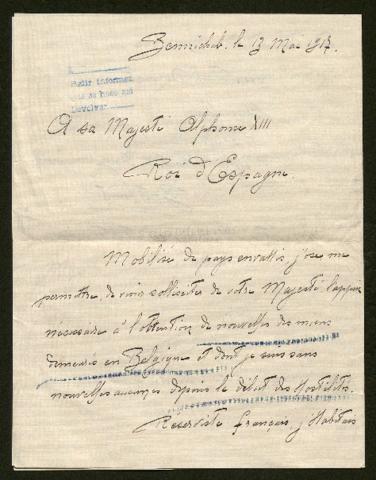 le 13 Mai 1917.
Pedir informes
que se hace así
Devolver
A sa Majesté Alphonse XIII
Roi d'Espagne.
Mobilisé de pays envahis j'ose me
permettre de venir solliciter de votre Majesté l'appui
nécessaire à l'obtention de nouvelles des miens
demeurés en Belgique et dont je suis sans
nouvelles aucunes depuis le début des Hostilités.
Réserviste français, j'habitais